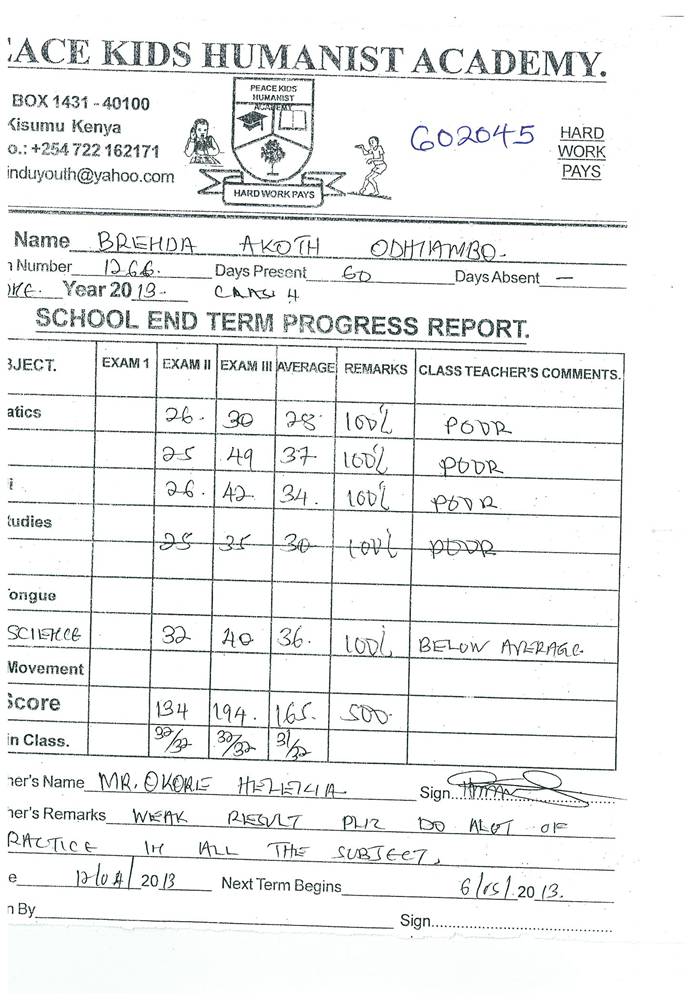 EACE KIDS HUMANIST ACADEMY.
BOX 1431 - 40100
Kisumu Kenya
o.: +254 722 162171
induyouth@yahoo.com
PEACE KIDS
HUMANIST
ACADEMY
HARD WORK PAYS
602045
HARD
WORK
PAYS
Name BREHDA AKOTH ODHIAMBO-
n Number 1266. Days Present 60 Days Absent —
Year 2013- CLASS 4
SCHOOL END TERM PROGRESS REPORT.
BJECT. EXAM 1 EXAM II EXAM III AVERAGE REMARKS CLASS TEACHER'S COMMENTS.
atics 26. 30 28 100% POOR
25 49 37 100% POOR
i 26. 42 34. 100% POOR
tudies 25 35 30 100% POOR
ongue
SCIENCE 32 40 36. 100% BELOW AVERAGE
Movement
Score 134 194. 165. 500.
in Class. 32/32 32/32 31/32
her's Name MR. OKORE Sign
her's Remarks WEAK RESULT PLIZ DO ALOT OF
RACTICE IN ALL THE SUBJECT,
e 12/04/2013 Next Term Begins 6/05/.2013.
n By Sign